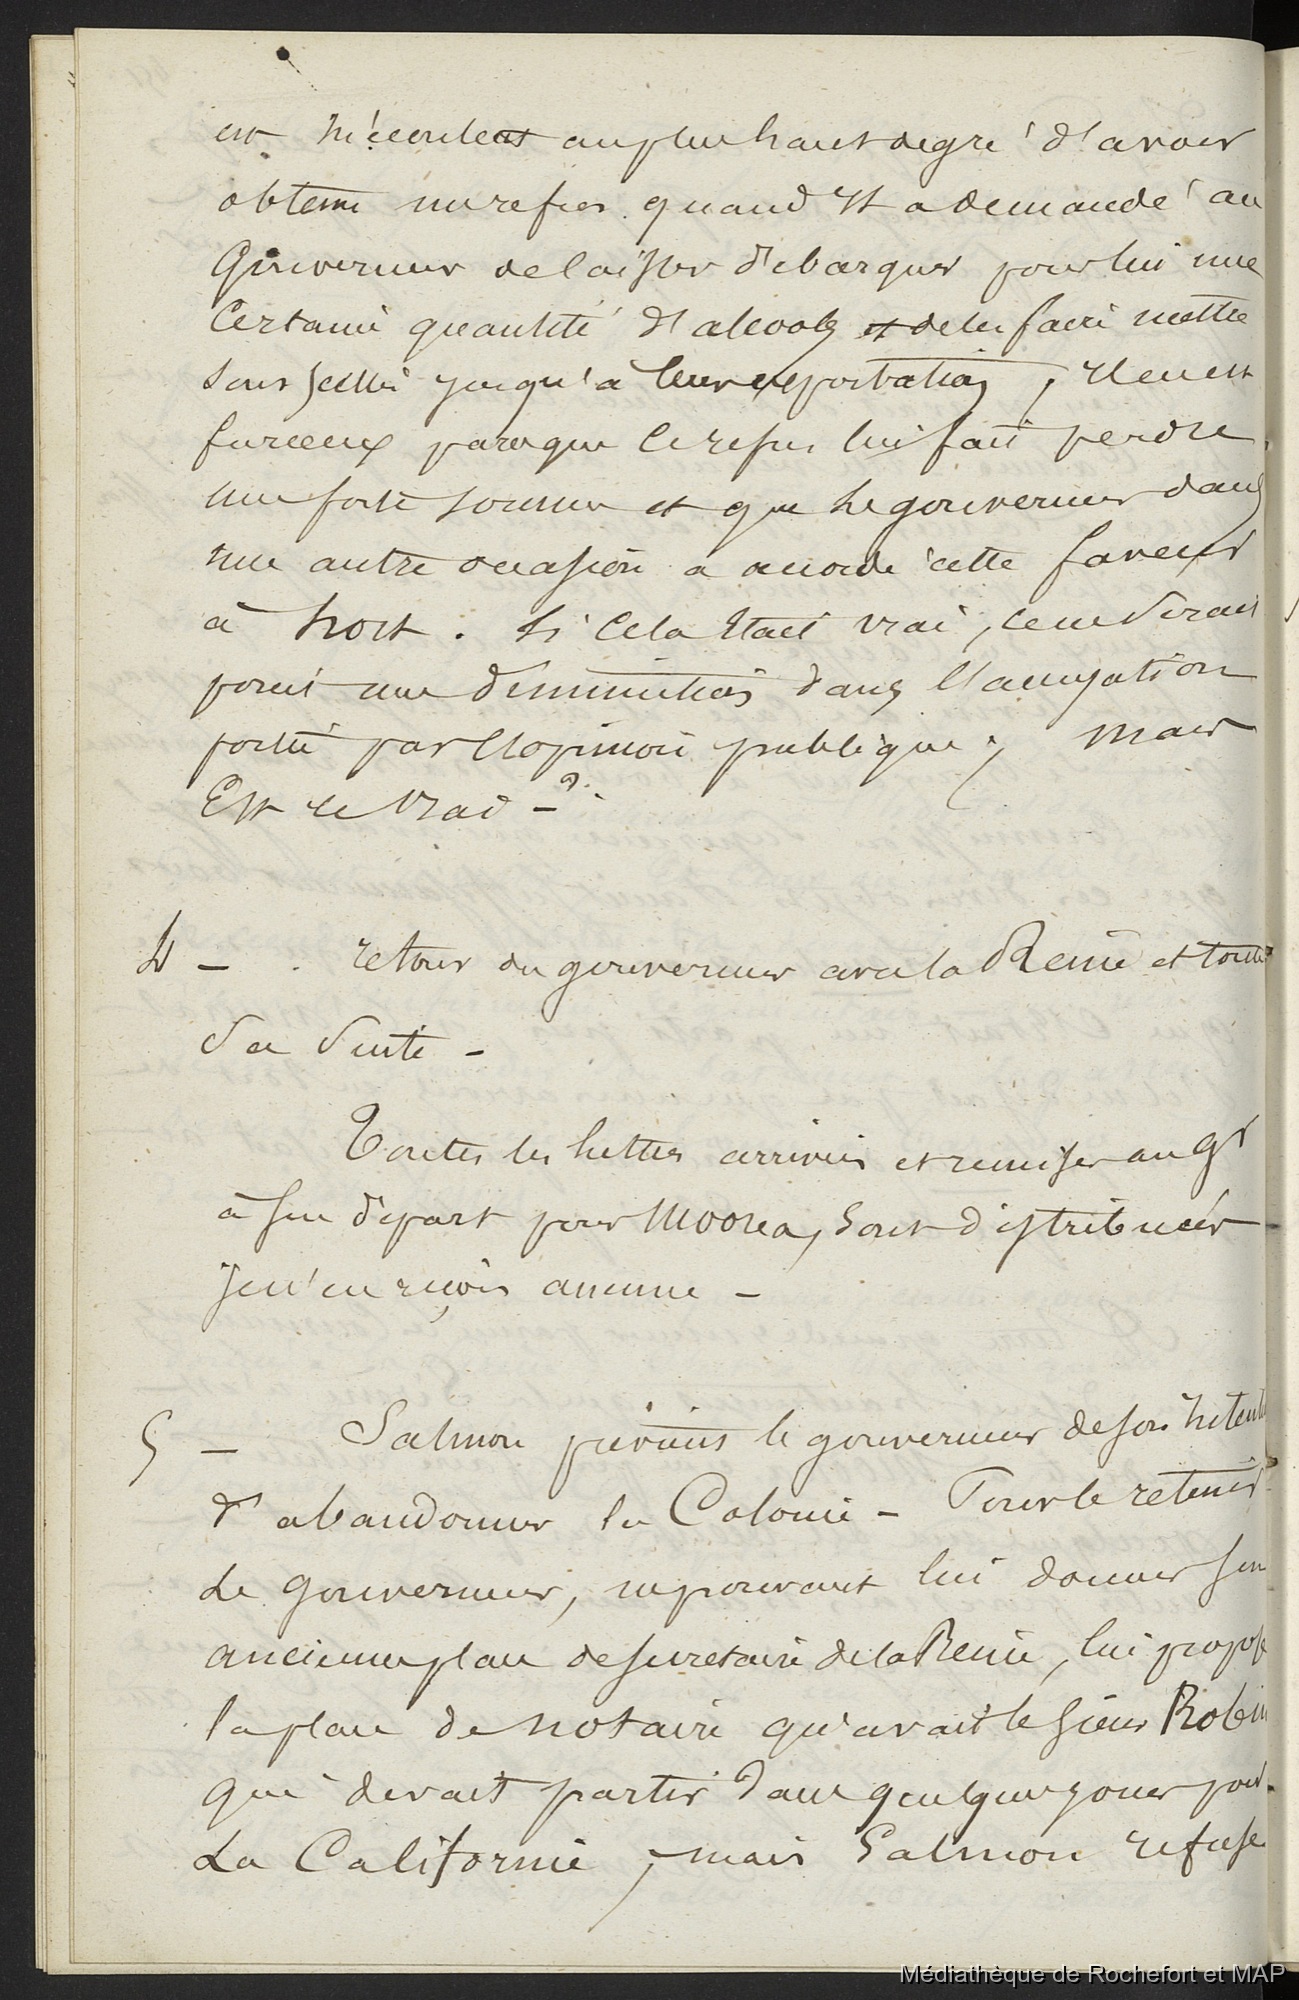 est mécontent au plus haut degré d'avoir
obtenu un refus quand il a demandé au
Gouverneur de laisser débarquer pour lui une
Certaine quantité d'alcools et de les faire mettre
sous scellé jusqu'à leur exportation, il en est
furieux parceque le refus lui fait perdre
une forte somme et que le gouverneur dans
une autre occasion a accordé cette faveur
à hort. Si cela était vrai, ce ne serait
point une diminution dans l'accusation
portée par l'opinion publique; mais
Est ce vrai - ?
4 - . retour du gouverneur avec la Reine et toute
sa suite -
Toutes les lettres arrivées et remises au Gr
à son départ pour Moorea, sont distribuées
je n'en reçois aucune -
5 - Salmon prévient le gouverneur de son intent
d'abandonner la Colonie - Pour le retenir
Le gouverneur, ne pouvant lui donner son
ancienne place de secretaire de la Reine, lui propose
la place de notaire qu'avait le sieur Robin
qui devait partir dans quelques jours pour
La Californie, mais Salmon refuse
Médiathèque de Rochefort et MAP